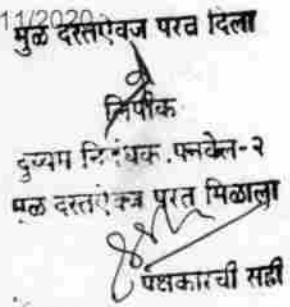 11/2020
मुळ दस्तऐवज परत दिला
लिपीक
दुय्यम निबंधक, पनवेल-२
मुळ दस्तऐवज परत मिळाला
पक्षकारची सही